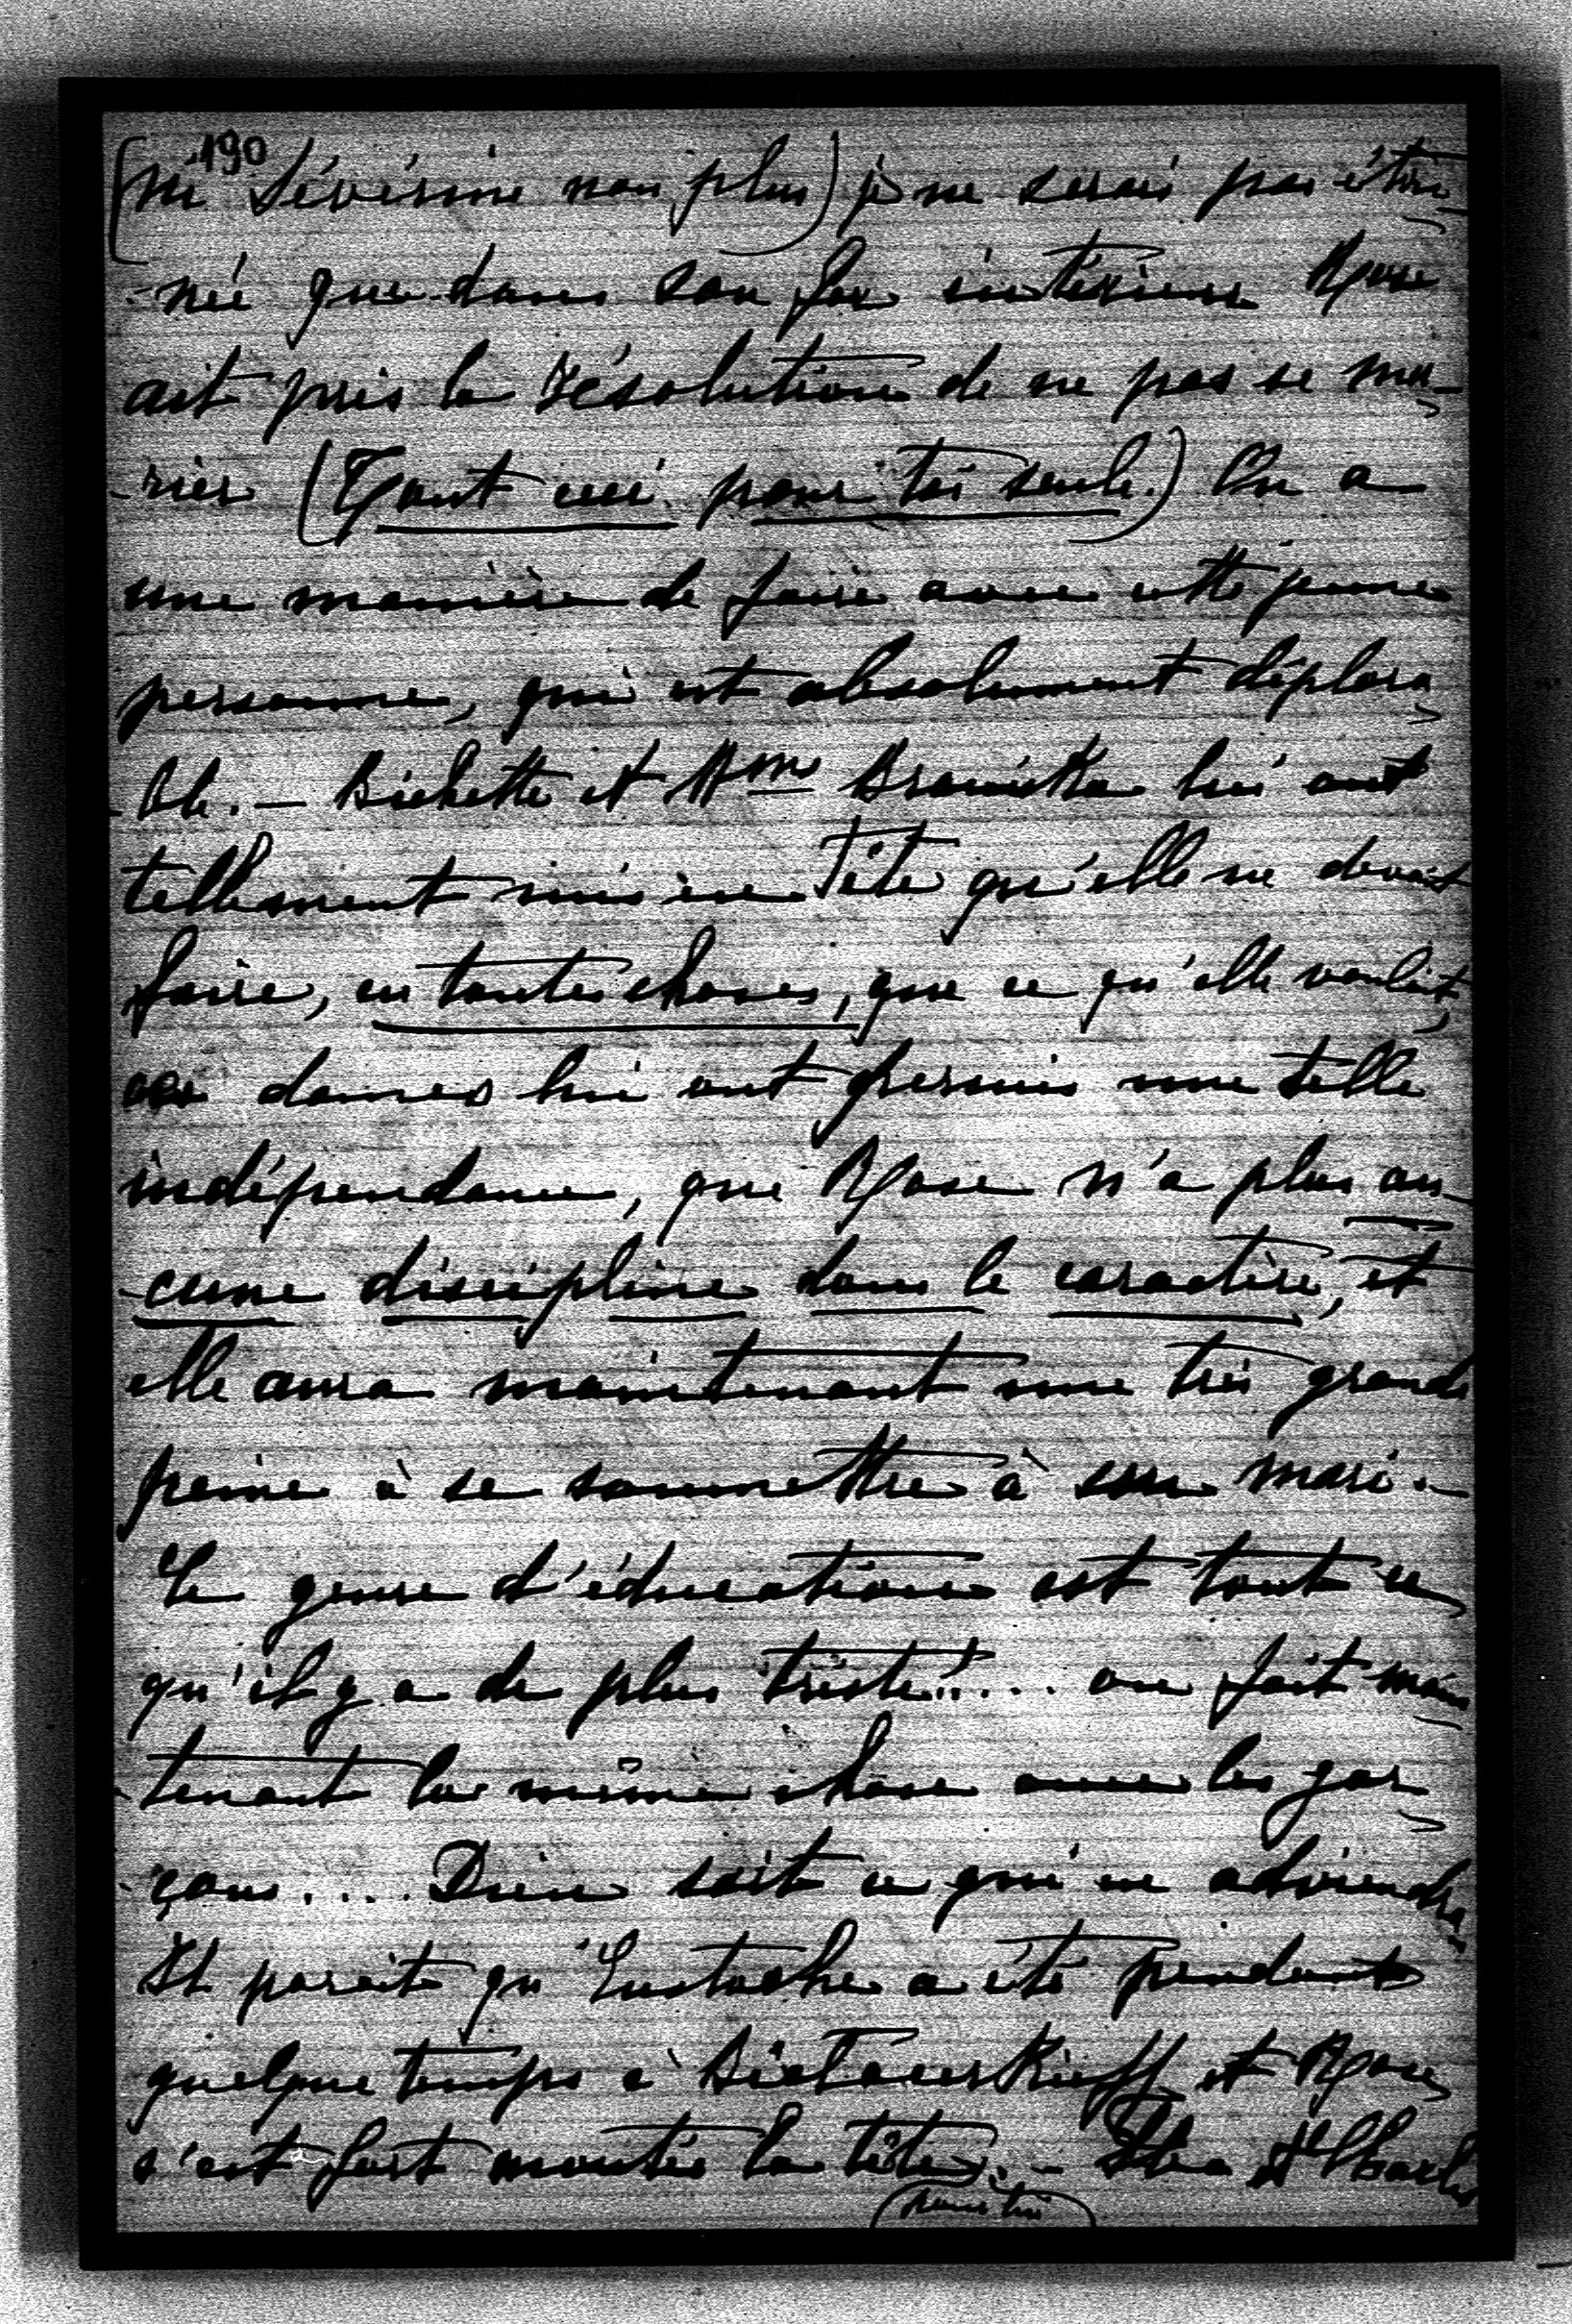 190
(ni Sévérine non plus) je ne serais pas éton-
-née que dans son for intérieur Rose
ait pris la résolution de ne pas se ma-
-rier (Tout ceci pour toi seule.) On a
une manière de faire avec cette jeune
personne, qui est absolument déplora-
-ble. — Bichette et Mme Branicka lui ont
tellement mis en tête qu'elle ne devait
faire, en toutes choses, que ce qu'elle voulait,
ces dames lui ont permis une telle
indépendance, que Rose n'a plus au-
-cune discipline dans le caractère, et
elle aura maintenant une très grande
peine à se soumettre à son mari. —
Ce genre d'éducation est tout ce
qu'il y a de plus triste!.... on fait main-
-tenant la même chose avec les gar-
-çons.... Dieu sait ce qui en adviendra.
Il parait qu'Eustache a été pendant
quelque temps à Biała cerkieff et Rose
s'est fort montée la tête. —
(pour toi)